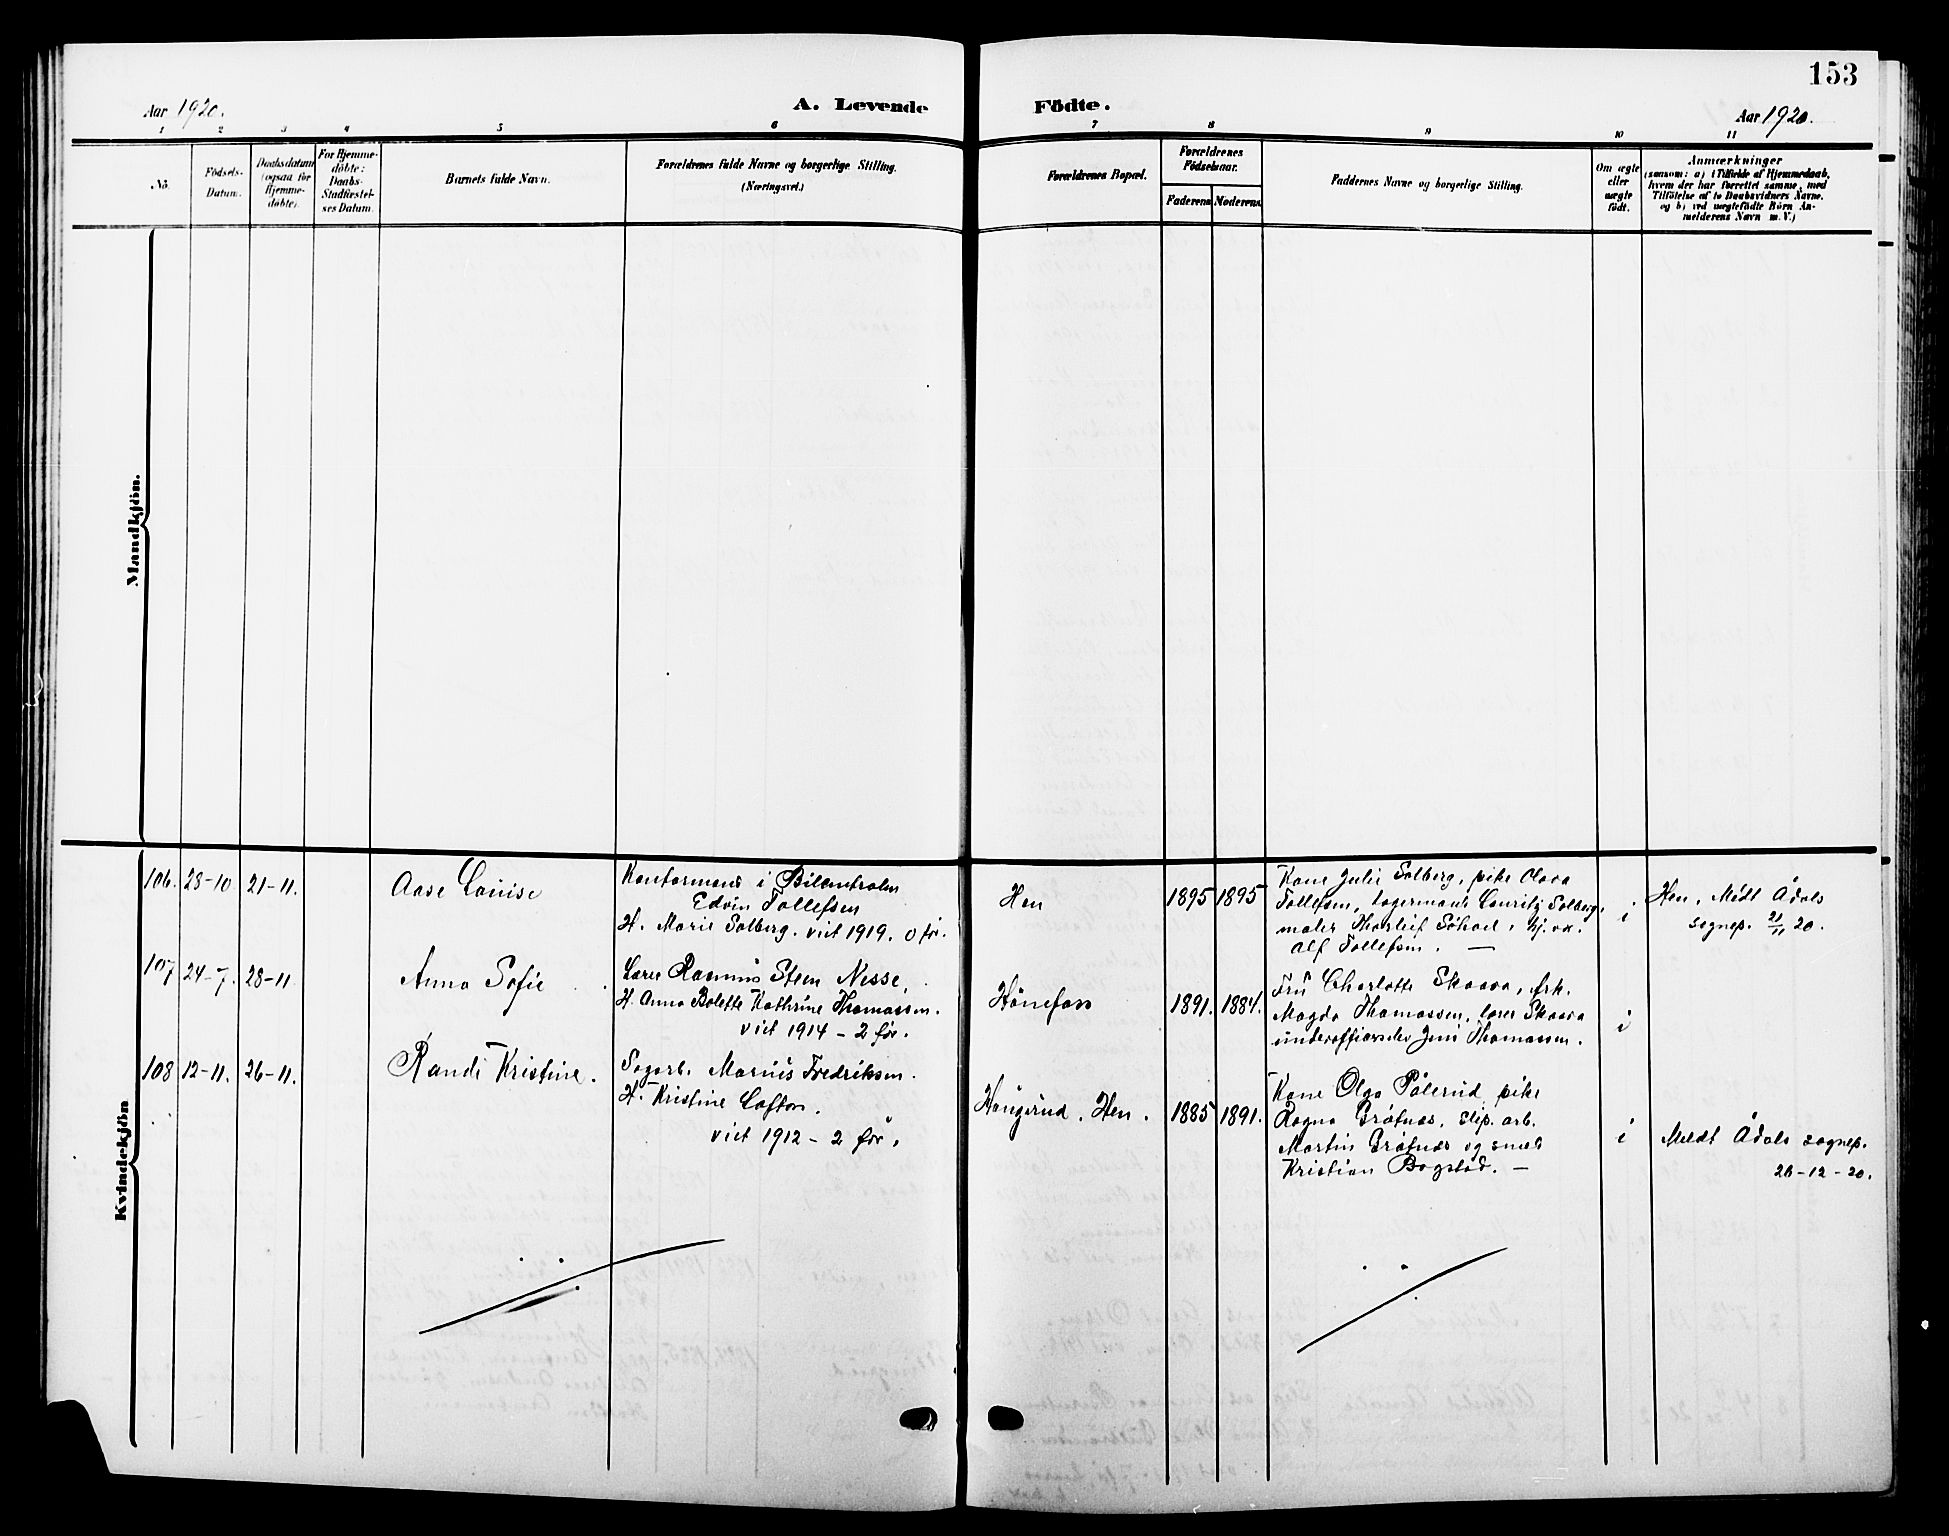 153
Aar 1920.
A. Levende Födte.
Aar 1920.
1 2 3 4 5 6 7 8 9 10 11
No.
Födsels-
Datum.
Daabsdatum
(ogsaa for
Hjemme-
döbte).
For Hjemme-
döbte:
Daabs-
Stadfæstel-
ses Datum.
Barnets fulde Navn.
Forældrenes fulde Navne og borgerlige Stilling.
(Næringsvei.)
Forældrenes Bopæl.
Forældrenes
Födselsaar.
Faderens
Moderens
Faddernes Navne og borgerlige Stilling.
Om ægte
eller
uægte
födt.
Anmærkninger
(saasom: a) i Tilfælde af Hjemmedaab,
hvem der har forrettet samme, med
Tilföielse af to Daabsvidners Navne.
og b) ved uægtefödte Börn An-
melderens Navn m. V.)
Mandkjön.
Kvindekjön
106. 28-10 21-11.
Aase Louise
Kontormand i Bilcentralen
Edvin Tollefsen
H. Marie Solberg. viet 1919. 0 før.
Hen
1895 1895
Kone Julie Solberg, pike Olava
Tollefsen, lagermand Lauritz Solberg,
maler Thorleif
Alf Tollefsen. —
i
Hen, Meldt Ådals
sognep. 21/11 20.
107 24-7. 28-11
Anna Sofie
Lærer Rasmus Steen Nesse,
H. Anna Bolette Kathrine Thomassen.
viet 1914 - 2 før.
Hönefoss
1891. 1884.
Fru Charlotte Skaara, frk.
Magda Thomassen, lærer Skaara
underofficerselev Jens Thomassen.
i
108 12-11. 26-11.
Randi Kristine.
Sagarb. Marius Fredriksen.
H. Kristine Lafton.
viet 1912 - 2 før.
Haugerud. Hen.
1885 1891.
Kone Olga Pålerud, pike
Ragna Gråtnæs, slip. arb.
Martin Gråtnæs og smed
Kristian Bogstad. —
i
Meldt Ådals sognep.
26-12-20.